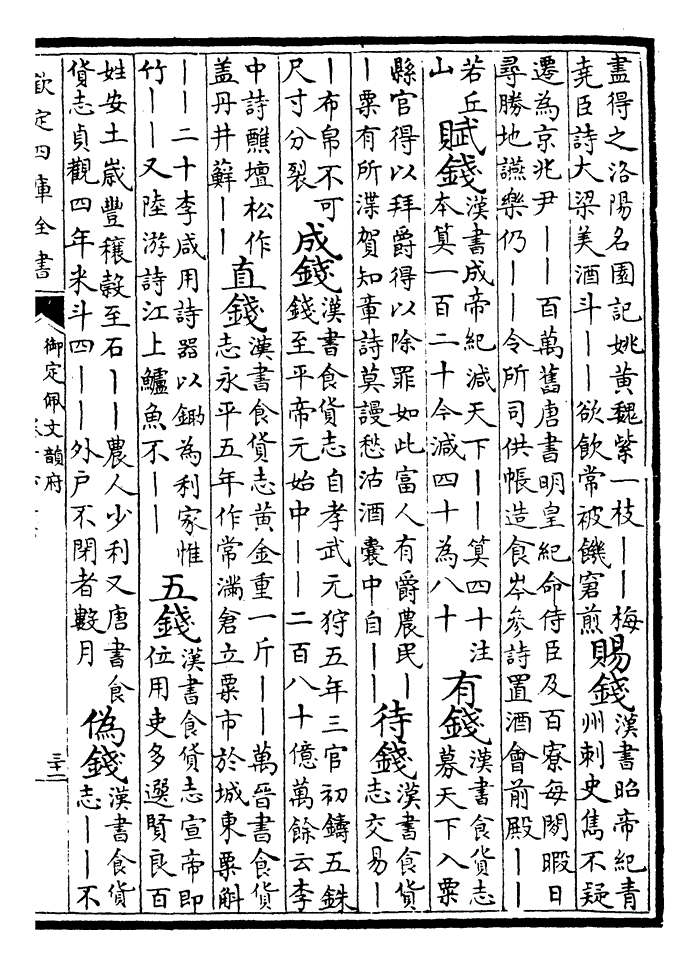 盡得之洛陽名園記姚黃魏紫一枝丨丨梅
堯臣詩大梁美酒斗丨丨欲飲常被饑窘煎
賜錢
漢書昭帝紀青
州刺史雋不疑
遷為京兆尹丨丨百萬舊唐書明皇紀命侍臣及百寮每閒暇日
尋勝地讌樂仍丨丨令所司供帳造食岑參詩置酒會前殿丨丨
若丘
山
賦錢
漢書成帝紀減天下丨丨算四十注
本算一百二十今減四十為八十
有錢
漢書食貨志
募天下入粟
縣官得以拜爵得以除罪如此富人有爵農民丨
丨粟有所渫賀知章詩莫謾愁沽酒囊中自丨丨
待錢
漢書食貨
志交易丨
丨布帛不可
尺寸分裂
成錢
漢書食貨志自孝武元狩五年三官初鑄五銖
錢至平帝元始中丨丨二百八十億萬餘云李
中詩醮壇松作
蓋丹井蘚丨丨
直錢
漢書食貨志黃金重一斤丨丨萬晉書食貨
志永平五年作常滿倉立粟市於城東粟斛
丨丨二十李咸用詩器以鋤為利家惟
竹丨丨又陸游詩江上鱸魚不丨丨
五錢
漢書食貨志宣帝即
位用吏多選賢良百
姓安土歲豐穰穀至石丨丨農人少利又唐書食
貨志貞觀四年米斗四丨丨外戶不閉者數月
偽錢
漢書食貨
志丨丨不
欽定四庫全書
御定佩文韻府
三十二